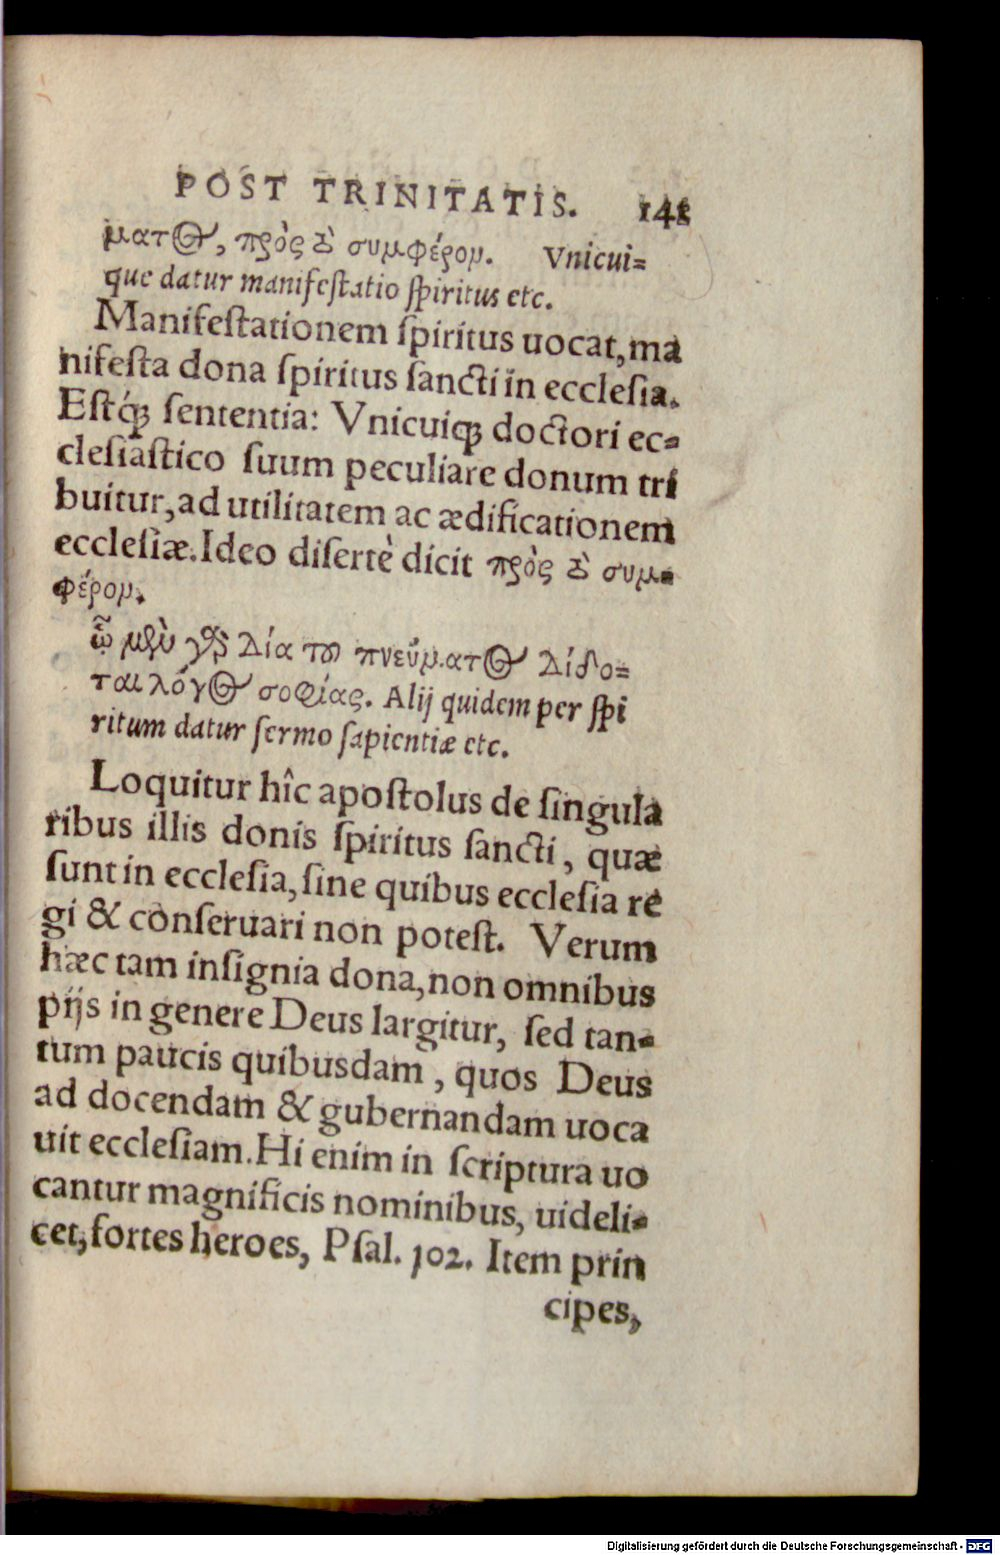 POST TRINITATIS. 148
ματος, πρὸς τὸ συμφέρον. Vnicui=
que datur manifestatio spiritus etc.
Manifestationem spiritus uocat, ma
nifesta dona spiritus sancti in ecclesia.
Estq́ꝫ sententia: Vnicuiqꝫ doctori ec=
clesiastico suum peculiare donum tri
buitur, ad utilitatem ac ædificationem
ecclesiæ. Ideo disertè dicit πρὸς τὸ συμ=
φέρον.
ᾧ μὲν γὰρ διὰ τοῦ πνεύματος δίδο=
ται λόγος σοφίας. Alij quidem per spi
ritum datur sermo sapientiæ etc.
Loquitur hîc apostolus de singula
ribus illis donis spiritus sancti, quæ
sunt in ecclesia, sine quibus ecclesia re
gi & conseruari non potest. Verum
hæc tam insignia dona, non omnibus
pijs in genere Deus largitur, sed tan=
tum paucis quibusdam, quos Deus
ad docendam & gubernandam uoca
uit ecclesiam. Hi enim in scriptura uo
cantur magnificis nominibus, uideli=
cet, fortes heroes, Psal. 102. Item prin
cipes,
Digitalisierung gefördert durch die Deutsche Forschungsgemeinschaft - DFG